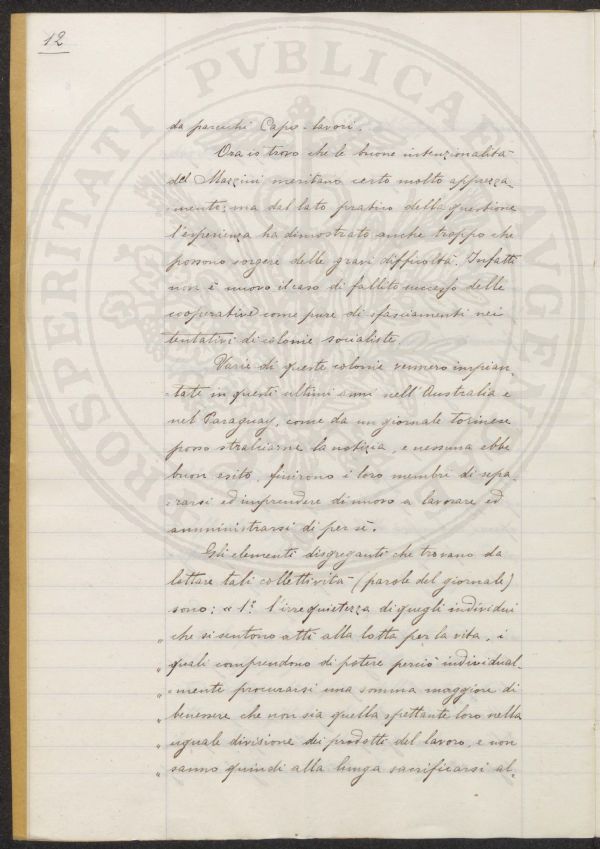 12
PROSPERITATI PVBLICAE AVGENDAE
da parecchi Capo-lavori.
Ora io trovo che le buone intenzionalità
del Mazzini meritano certo molto apprezza
-mento; ma dal lato pratico della questione
l'esperienza ha dimostrato anche troppo che
possono sorgere delle gravi difficoltà. Infatti
non è nuovo il caso di fallito successo delle
cooperative come pure di sfasciamenti nei
tentativi di colonie socialiste.
Varie di queste colonie vennero impian
-tate in questi ultimi anni nell'Australia e
nel Paraguay, come da un giornale torinese
posso stralciarne la notizia, e nessuna ebbe
buon esito, finirono i loro membri di sepa
-rarsi ed imprendere di nuovo a lavorare ed
amministrarsi di per sè.
Gli elementi disgreganti che trovano da
lottare tali collettività (parole del giornale)
sono: « 1.° l'irrequietezza di quegli individui
" che si sentono atti alla lotta per la vita, i
" quali comprendono di potere perciò individual-
" -mente procurarsi una somma maggiore di
" benessere che non sia quella spettante loro nella
" uguale divisione dei prodotti del lavoro, e non
" sanno quindi alla lunga sacrificarsi al-